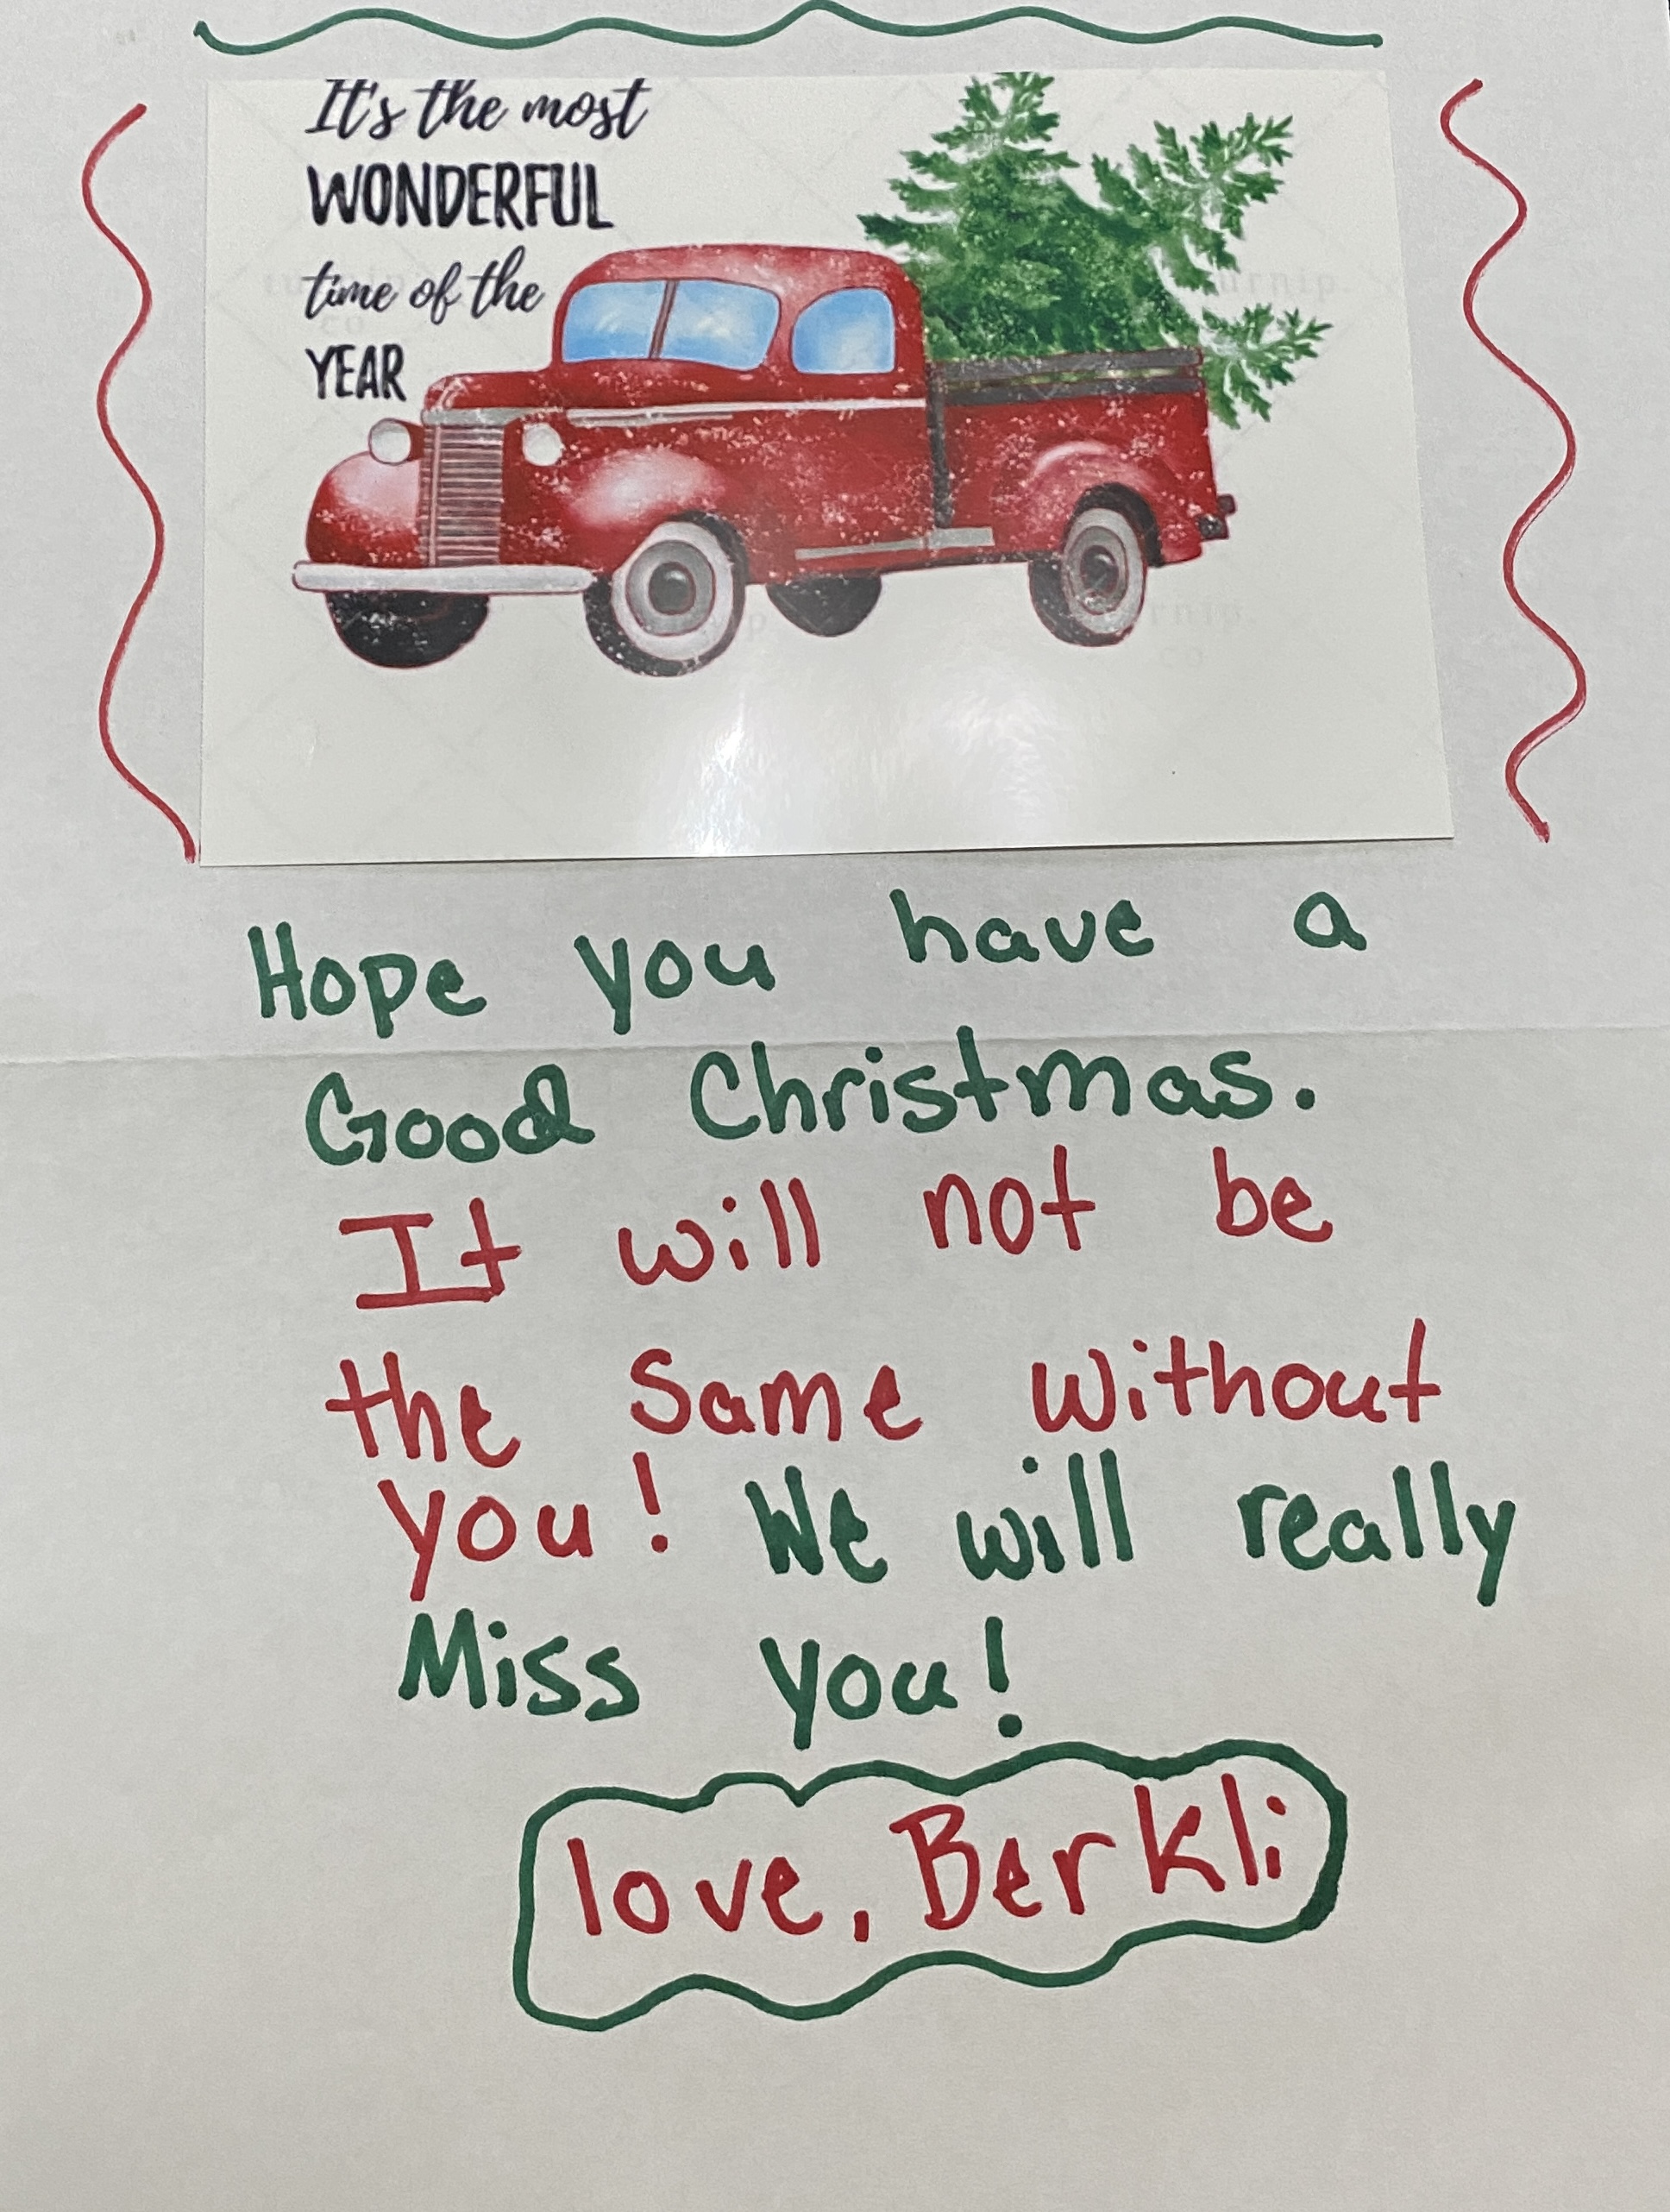 It's the most
WONDERFUL
time of the
YEAR
Hope you have a
Good Christmas.
It will not be
the same without
you! We will really
Miss you!
love, Berkli